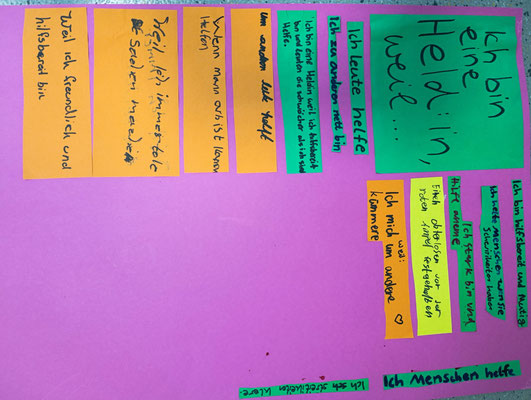 Ich bin
eine
Held:in,
weil...
Ich leute helfe
Ich zu anderen nett bin
Ich bin eine Heldin weil ich hilfsbereit
bin und leuten die schwächer als ich sind
Helfe.
um andern leute helft
Wenn mann arbist kann
Helfen
Weil ich immer tole
Sachen mache
Weil ich freundlich und
hilfsbereit bin
Ich bin hilfsbereit und mutig
Ich helfe Menschen wenn sie
Schwirikeiten haben
Ich stark bin und
Hilfe aneme
Eifach vor der
roten festgehalten
weil:
Ich mich um andere
kümmere
Ich Menschen helfe
Ich streitikeiten kläre.